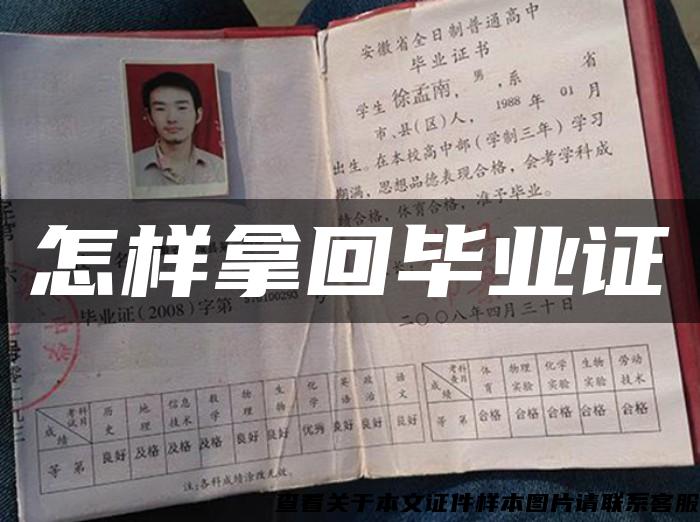 安徽省全日制普通高中
毕业证书
学生徐孟南，男，系 省
市、县(区)人，1988年01月
出生。在本校高中部（学制三年）学习
期满，思想品德表现合格，会考学科成
绩合格，体育合格，准予毕业。
怎样拿回毕业证
毕业证(2008)字第
二〇〇八年四月三十日
考试科目 历史 地理 信息技术 数学 物理 生物 化学 英语 政治 语文
成绩
等第 良好 及格 及格 及格 良好 良好 优秀 良好 良好 良好
注:各科成绩涂改无效。
考查科目 体育 物理实验 化学实验 生物实验 劳动技术
成绩
等第 合格 合格 合格 合格 合格
查看关于本文证件样本图片请联系客服